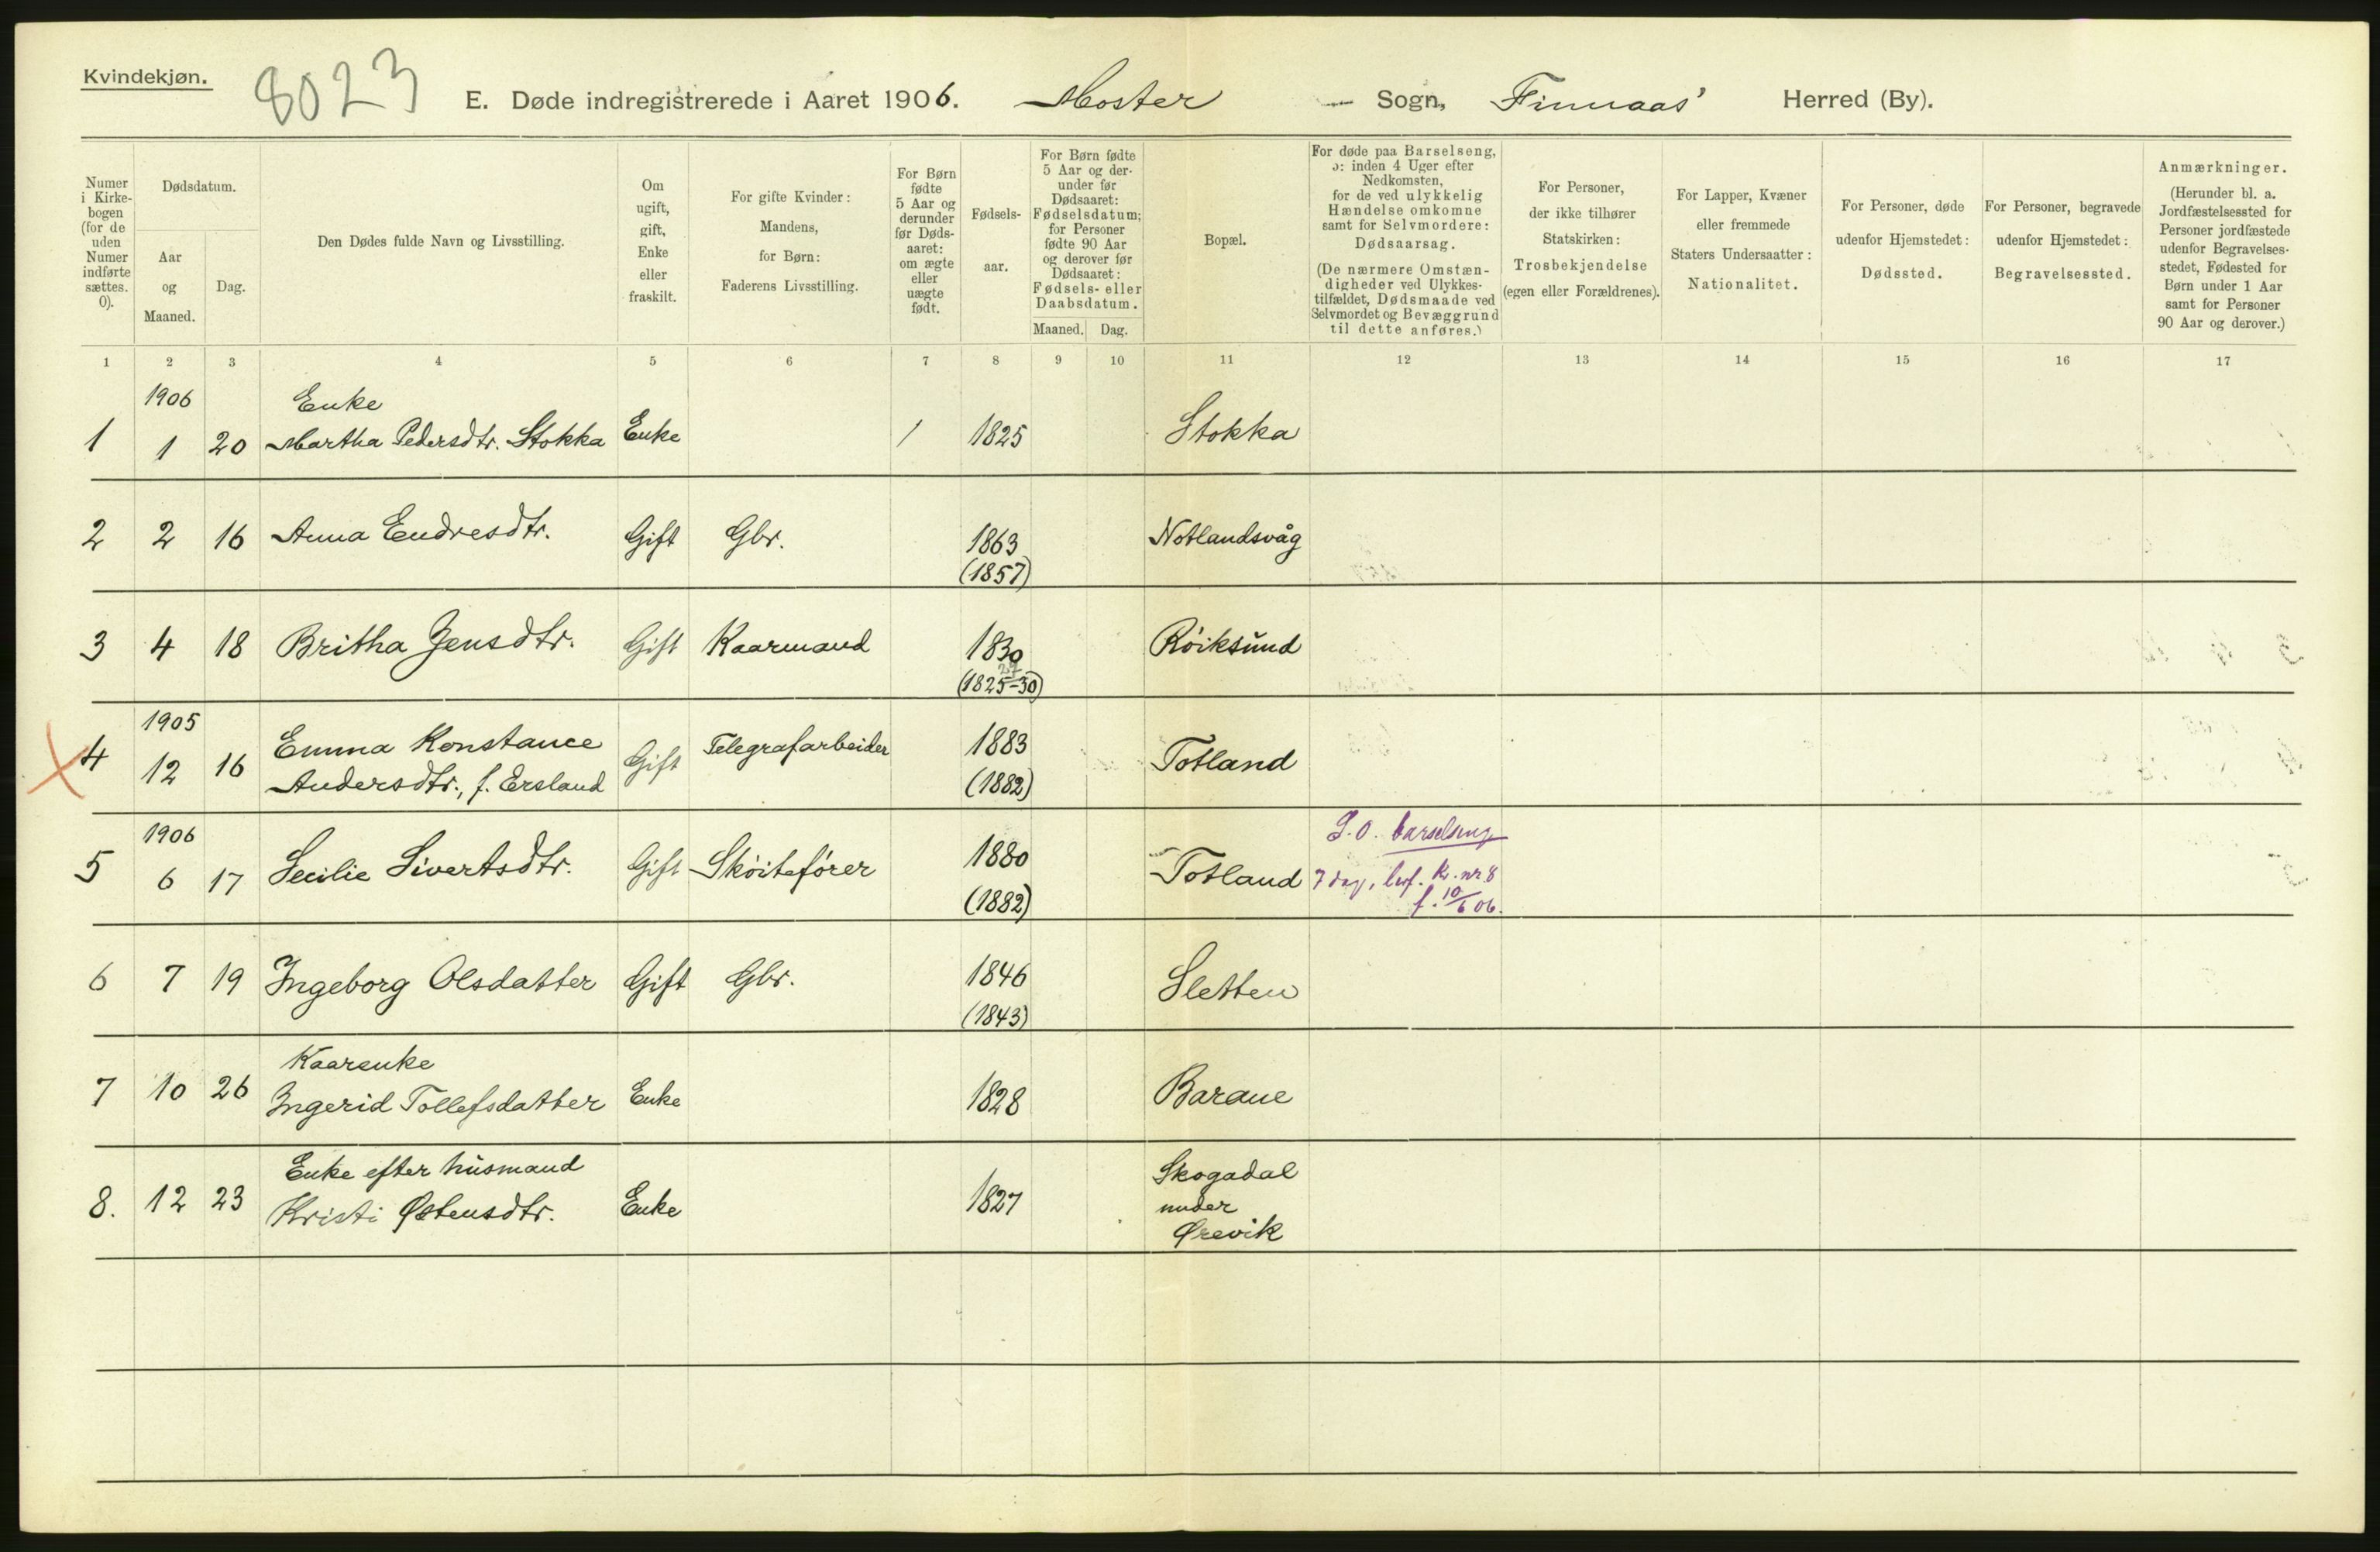 Kvindekjøn.
8023
E. Døde indregistrerede i Aaret 1906. Moster Sogn, Finnaas' Herred (By).
Numer i Kirkebogen (for de uden Numer indførte sættes. 0).
Dødsdatum.
Aar og Maaned.
Dag.
Den Dødes fulde Navn og Livsstilling.
Om ugift, gift, Enke eller fraskilt.
For gifte Kvinder: Mandens, for Børn: Faderens Livsstilling.
For Børn fødte 5 Aar og derunder før Dødsaaret: om ægte eller uægte født.
Fødselsaar.
For Børn fødte 5 Aar og derunder før Dødsaaret: Fødselsdatum; for Personer fødte 90 Aar og derover før Dødsaaret: Fødsels- eller Daabsdatum.
Maaned. Dag.
Bopæl.
For døde paa Barselseng, ɔ: inden 4 Uger efter Nedkomsten, for de ved ulykkelig Hændelse omkomne samt for Selvmordere: Dødsaarsag.
(De nærmere Omstændigheder ved Ulykkestilfældet, Dødsmaade ved Selvmordet og Bevæggrund til dette anføres.)
For Personer, der ikke tilhører Statskirken: Trosbekjendelse (egen eller Forældrenes).
For Lapper, Kvæner eller fremmede Staters Undersaatter: Nationalitet.
For Personer, døde udenfor Hjemstedet: Dødssted.
For Personer, begravede udenfor Hjemstedet: Begravelsessted.
Anmærkninger.
(Herunder bl. a. Jordfæstelsessted for Personer jordfæstede udenfor Begravelsesstedet, Fødested for Børn under 1 Aar samt for Personer 90 Aar og derover.)
1 2 3 4 5 6 7 8 9 10 11 12 13 14 15 16 17
1906 Enke
1 1 20 Martha Pedersdtr. Stokka Enke / 1825 Stokka
2 2 16 Anna Endresdtr. Gift Gbr. 1863 Notlandsvåg
(1857)
3 4 18 Britha Jensdtr. Gift Kaarmand 1830 Röiksund
(1825-30)
1905
4 12 16 Emma Konstance Gift Telegrafarbeider 1883 Totland
Andersdtr., f. Ersland (1882)
1906
5 6 17 Secilie Sivertsdtr. Gift Sköitefórer 1880 Totland
(1882)
barselseng
7 dag, Kr. nr 8
f. 10/6 06.
6 7 19 Ingeborg Olsdatter Gift Gbr. 1846 Sletten
(1843)
Kaarenke
7 10 26 Ingerid Tollefsdatter Enke 1828 Barane
Enke efter húsmand
8. 12 23 Kristi Østensdtr. Enke 1827 Skogadal
under
Ørevik